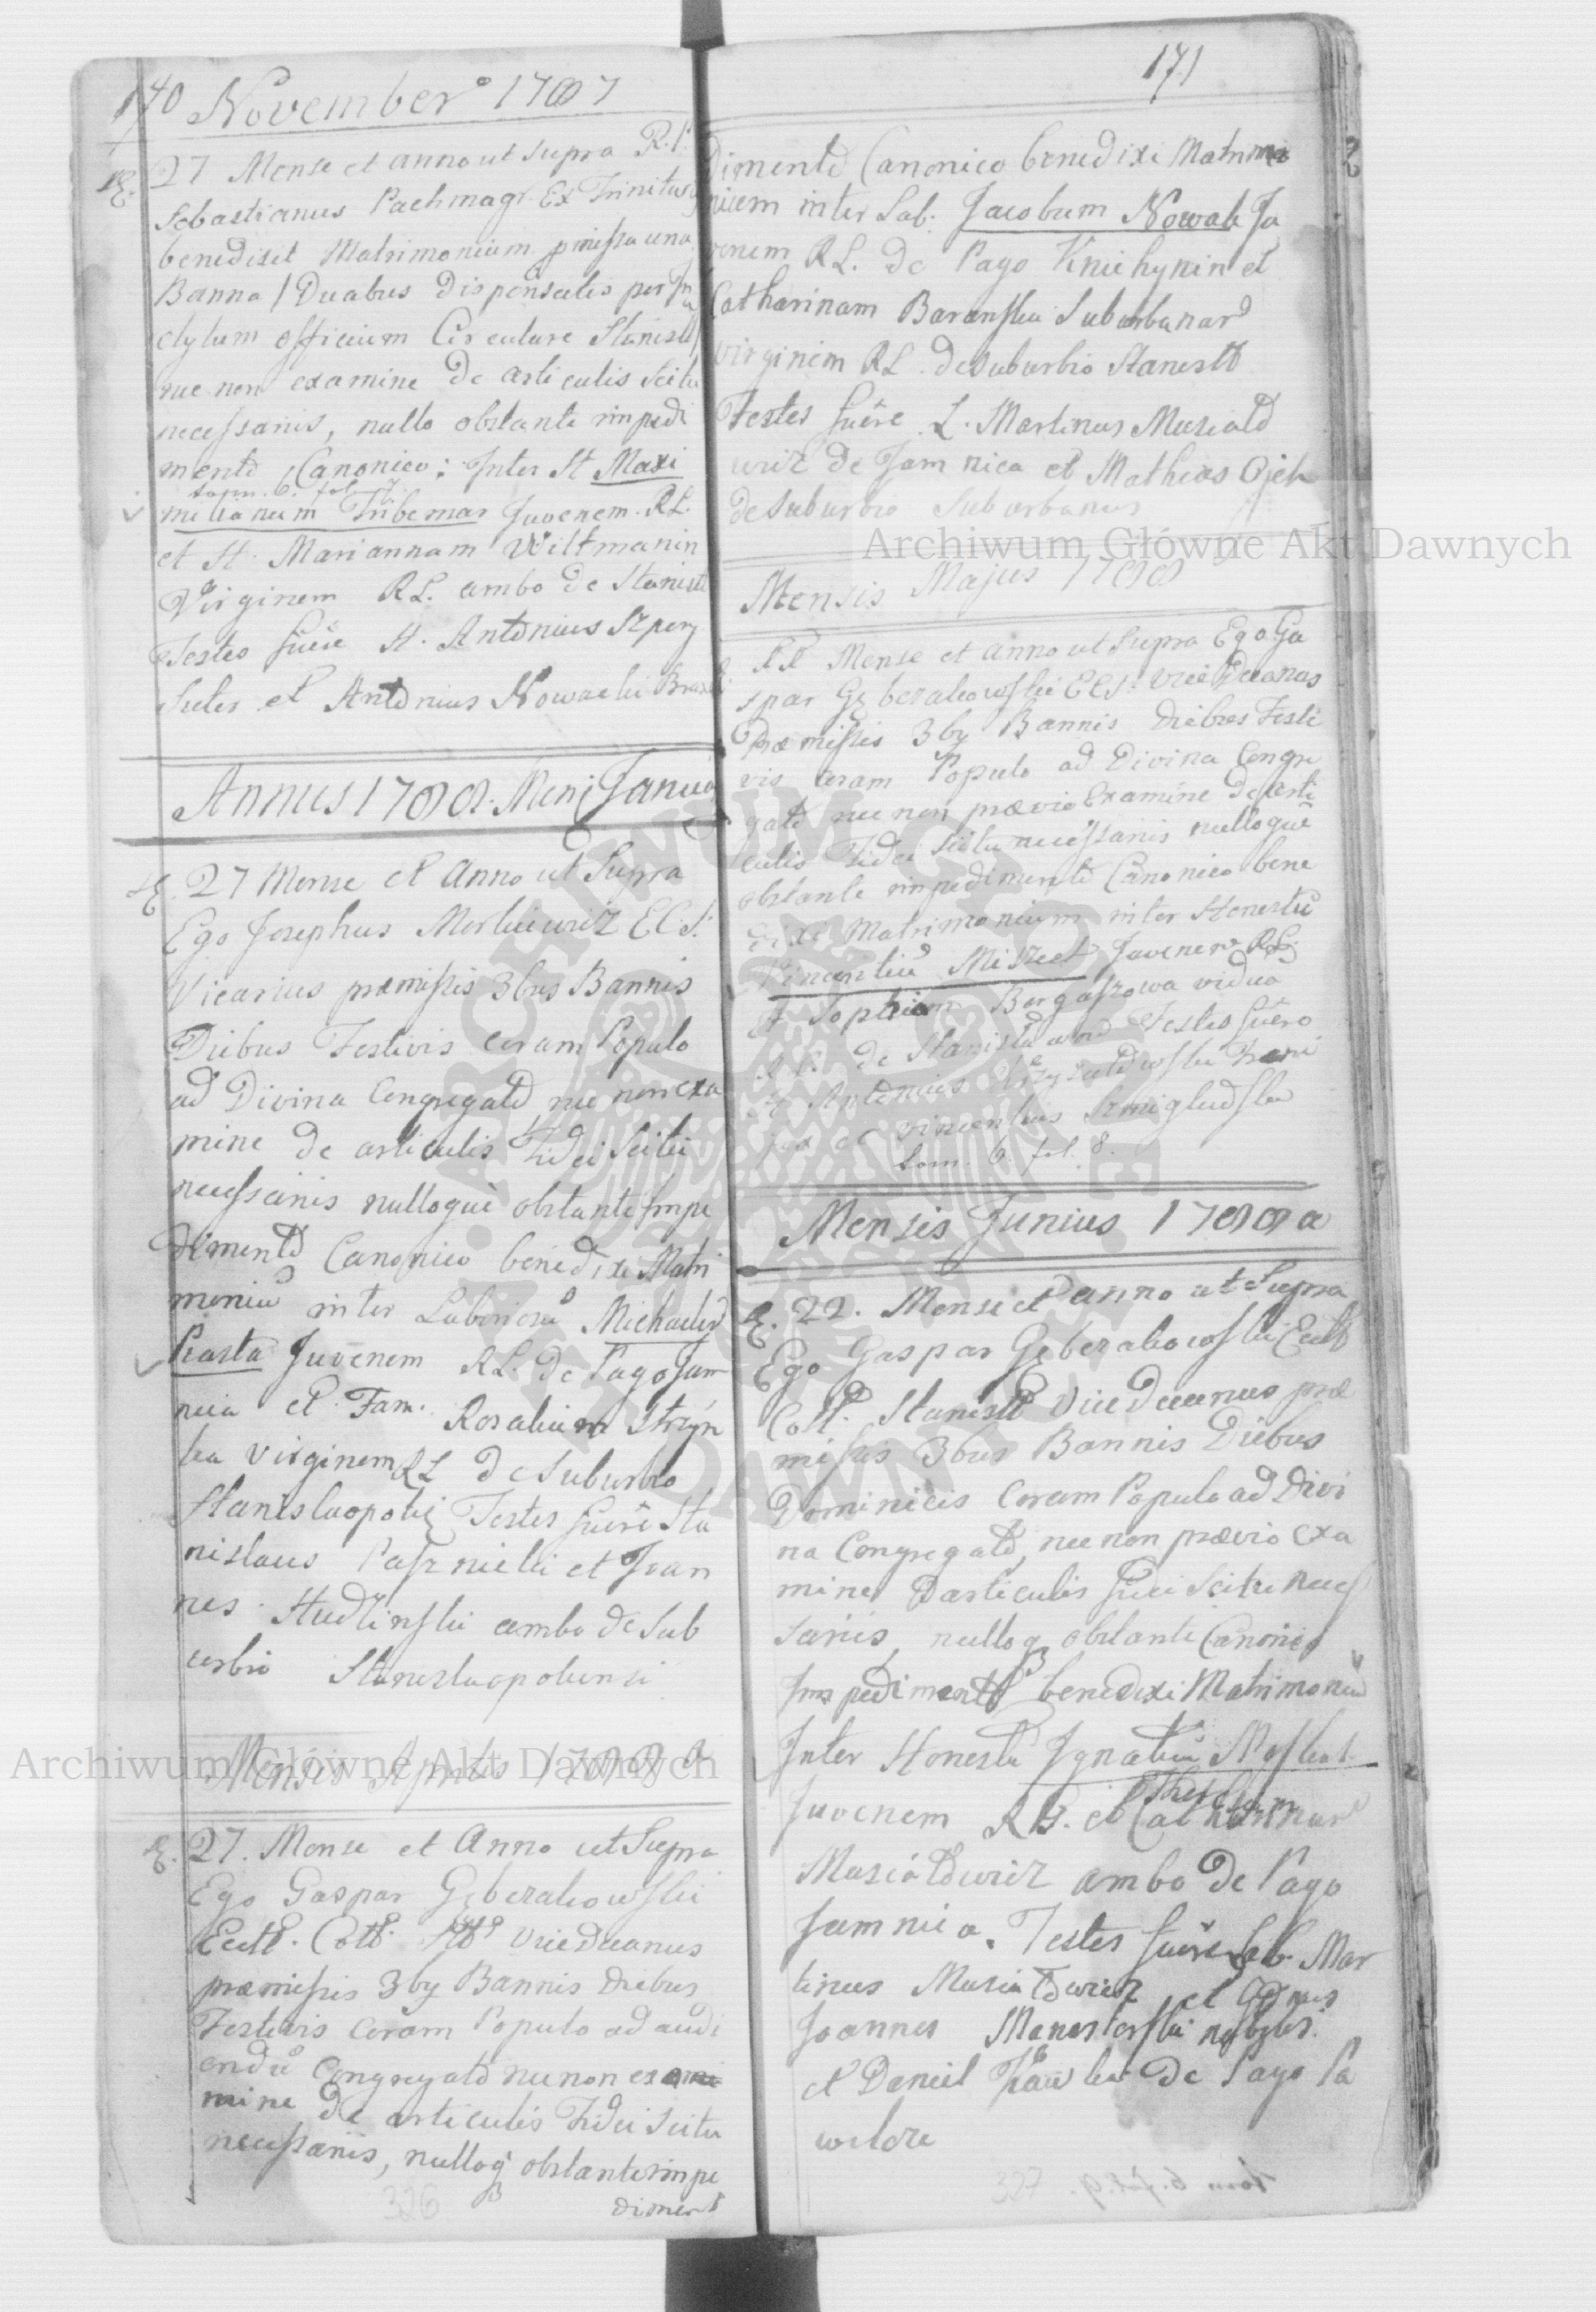 170 November 1787
27 Mense et anno ut supra R. P.
Sebastianus Pachmagr Ex Trinitus
benedixit Matrimonium pmissa una
Banna / Duabus Dispensatis per In
clytum officium Circulare Stanisl /
nec non examine De articulis Scitu
necessariis, nullo obstante impedi
mento Canonico: Inter H Maxi
tom. 6. fol. 7
milianum Tribemar Juvenem RL.
et H. Mariannam Wiltmanin
Virginem RL. ambo de Stanisl
Testes fuêre H. Antonius Szperg
et Antonius Nowacki
Annus 1788. Mens Januar
27 Mense et Anno ut Supra
Ego Josephus Morkiewicz EC.S.
Vicarius præmissis 3bus Bannis
Diebus Festivis Coram Populo
ad Divina Congregato, nec non exa
mine de articulis Fidei Scitu
necessariis nulloque obstante Impe
dimento Canonico benedixi Matri
moniu inter Laboriosu Michaelem
Piasta Juvenem RL. De Pago Jam
nica et Fam. Rosaliam Stryn
ka Virginem RL de Suburbio
Stanislaopoli Testes fuêre Sta
nislaus Pasznicki et Joan
nes Studzinski ambo de Sub
urbio Stanislaopoliensi
Mensis Aprilis 1788
27. Mense et Anno ut Supra
Ego Gaspar Gębrzakowski
Eccl. Coll. Vice Decanus
præmissis 3bg Bannis Diebus
Festivis Coram Populo ad audi
endu Congregato nec non exa
mine De articulis Fidei Scitu
necessariis, nulloq obstante impe
diment
326
171
dimento Canonico benedixi Matrimo
nium inter Lab. Jacobum Nowak Ju
venem RL. De Pago Knichynin et
Catharinam Baranska Suburbanar
virginem RL. De Suburbio Stanisl
Testes fuêre L. Martinus Musiald
wicz De Jamnica et Mathias Ojek
de Suburbio Suburbanus
Mensis Majus 1788
Mense et anno ut Supra Ego Ga
spar Gębrzakowski EC.S. Vice Decanus
Præmissis 3bg Bannis Diebus Festi
vis Coram Populo ad Divina Congre
gato nec non prævio Examine De arti
culis Fidei Scitu necessariis nulloque
obstante impedimento Canonico bene
dixi Matrimonium inter Honestu
Vincentiu Miszel Juvenem RL.
et Sophiam Bergaszowa vidua
RL. de Stanislawow Testes fuêre
Antonius
et Vincentius Szmigluski
tom. 6. fol. 8.
Mensis Junius 1788 a
22. Mense et anno ut Supra
Ego Gaspar Gębrzakowski Eccl
Coll. Stanisl Vice Decanus præ
missis 3bus Bannis Diebus
Dominicis Coram Populo ad Divi
na Congregato, nec non prævio exa
mine Darticulis fidei Scitu neces
sariis, nulloq obstante Canonico
Impedimento benedixi Matrimoniu
Inter Honestu Ignatiu Moskal
Juvenem RG. et Catharinar
Theclam
Musialdwicz ambo de Pago
Jamnica. Testes fuêre Lab. Mar
tinus Musialdwicz et Gdnus
Joannes Manasterski nobilis.
et Daniel de Pago Pa
welcze
327
tom. 6. fol. 9.
Archiwum Główne Akt Dawnych
Archiwum Główne Akt Dawnych
ARCHIWUM GŁÓWNE AKT DAWNYCH